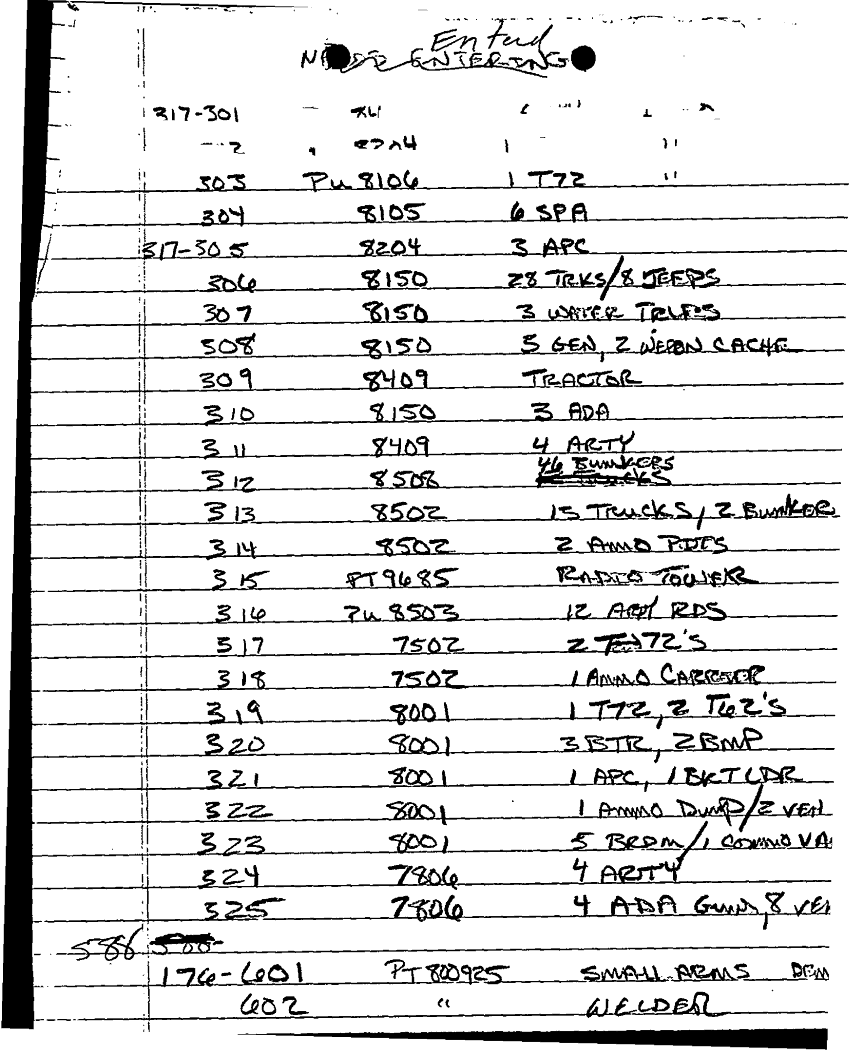 Entered
ENTERING
317-301
2 1 "
303 Pu 8106 1 T72 "
304 8105 6 SPA
317-305 8204 3 APC
306 8150 28 TRKS/8 JEEPS
307 8150 3 WATER
308 8150 5 GEN, 2 WEPON CACHE
309 8409 TRACTOR
310 8150 3 ADA
311 8409 4 ARTY
46 BUNKERS
312 8508
313 8502 15 TRUCKS, 2 BUNKER
314 8502 2 AMMO
315 PT9685 RADIO TOWER
316 Pu 8503 12 RDS
317 7502 2 T72'S
318 7502 1 AMMO CARRIER
319 8001 1 T72, 2 T62'S
320 8001 3 BTR, 2 BMP
321 8001 1 APC, 1 BKT LDR
322 8001 1 AMMO DUMP/2 VEH
323 8001 5 BRDM/1 COMMO VA
324 7806 4 ARTY
325 7806 4 ADA Guns, 8 VEH
586
176-601 PT 800925 SMALL ARMS DEM
602 " WELDER